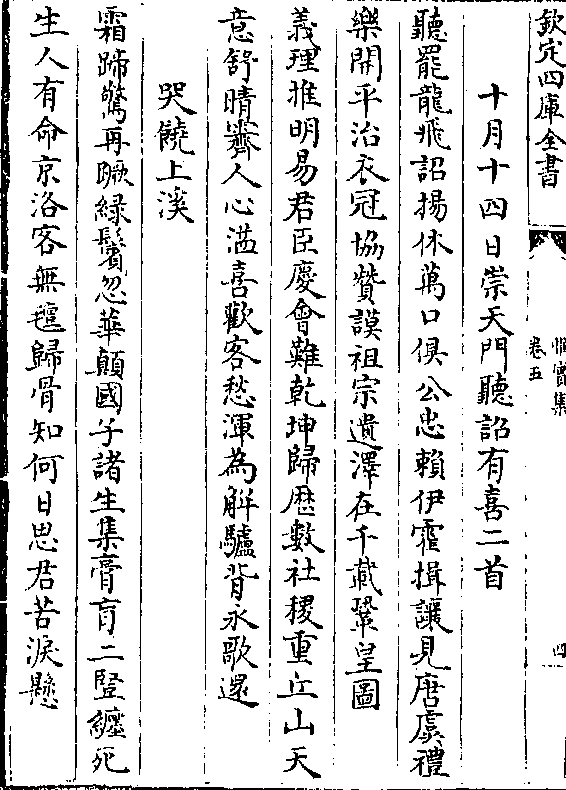 欽定四庫全書
惟實集
卷五
四
十月十四日崇天門聽詔有喜二首
聽罷龍飛詔揚休萬口俱公忠賴伊霍揖讓見唐虞禮
樂開平治衣冠協贊謨祖宗遺澤在千載鞏皇圖
義理推明易君臣慶會難乾坤歸歴數社稷重丘山天
意舒晴霽人心滥喜歡客愁渾為解驢背永歌還
哭饒上溪
霜蹄驚再蹶緑鬢忽華顛國子諸生集膏肓二竪纏死
生人有命京洛客無氊歸骨知何日思君苦淚懸